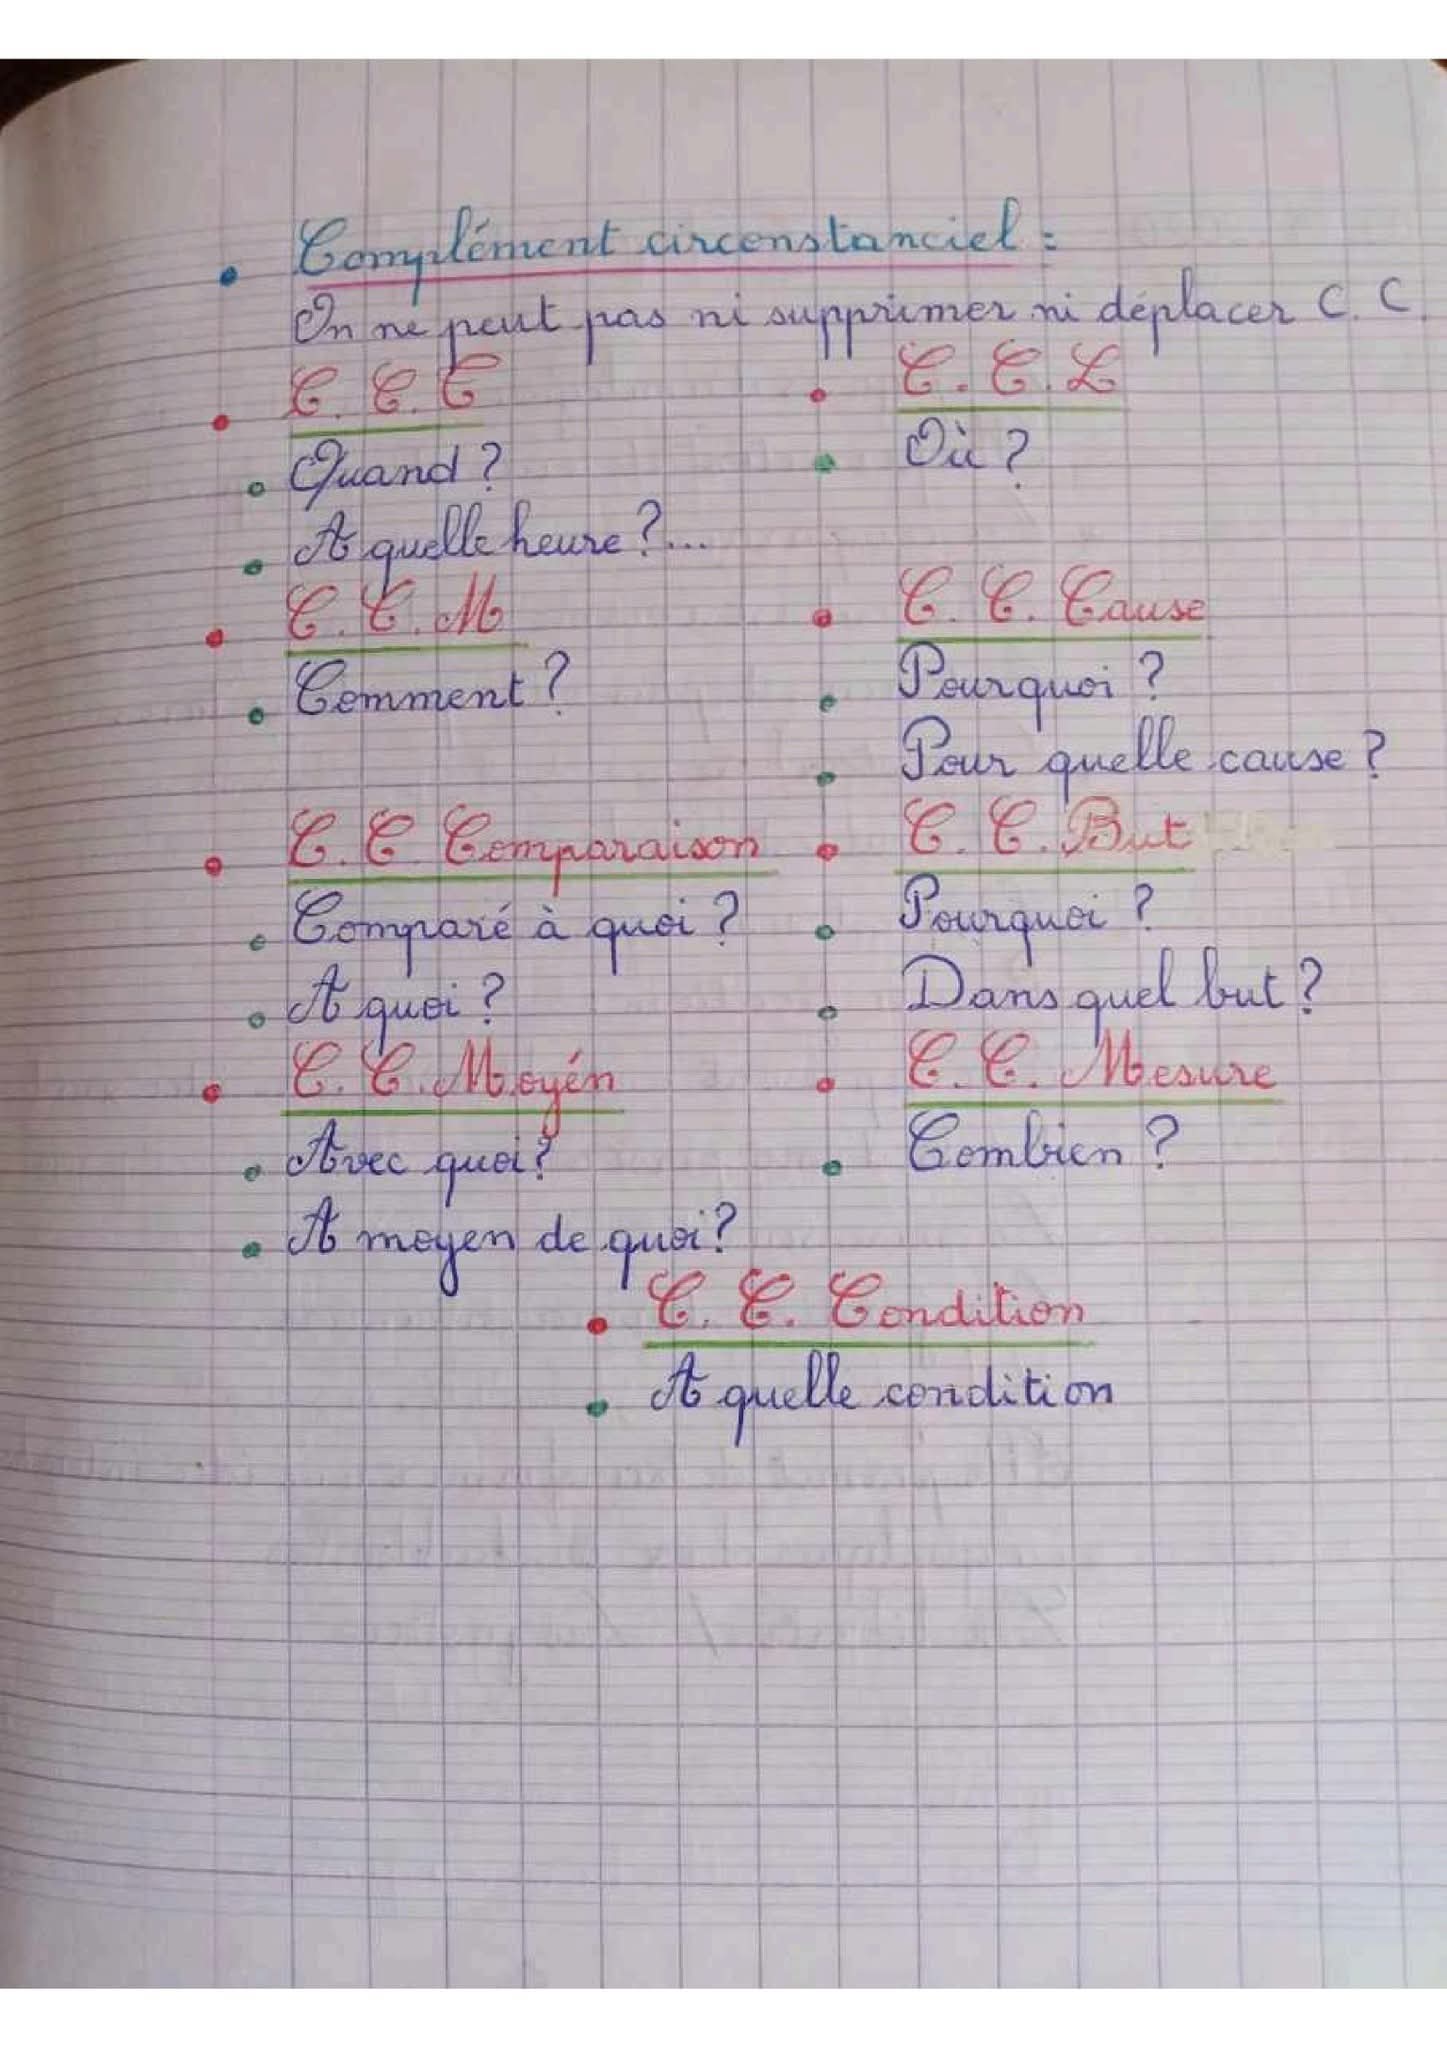 Complément circonstanciel :
On ne peut pas ni supprimer ni déplacer C. C.
C. C. T
Quand ?
A quelle heure ?...
C. C. L
Où ?
C. C. M
Comment ?
C. C. Cause
Pourquoi ?
Pour quelle cause ?
C. C Comparaison
Comparé à quoi ?
A quoi ?
C. C. But
Pourquoi ?
Dans quel but ?
C. C. Moyén
Avec quoi ?
A moyen de quoi ?
C. C. Mesure
Combien ?
C. C. Condition
A quelle condition